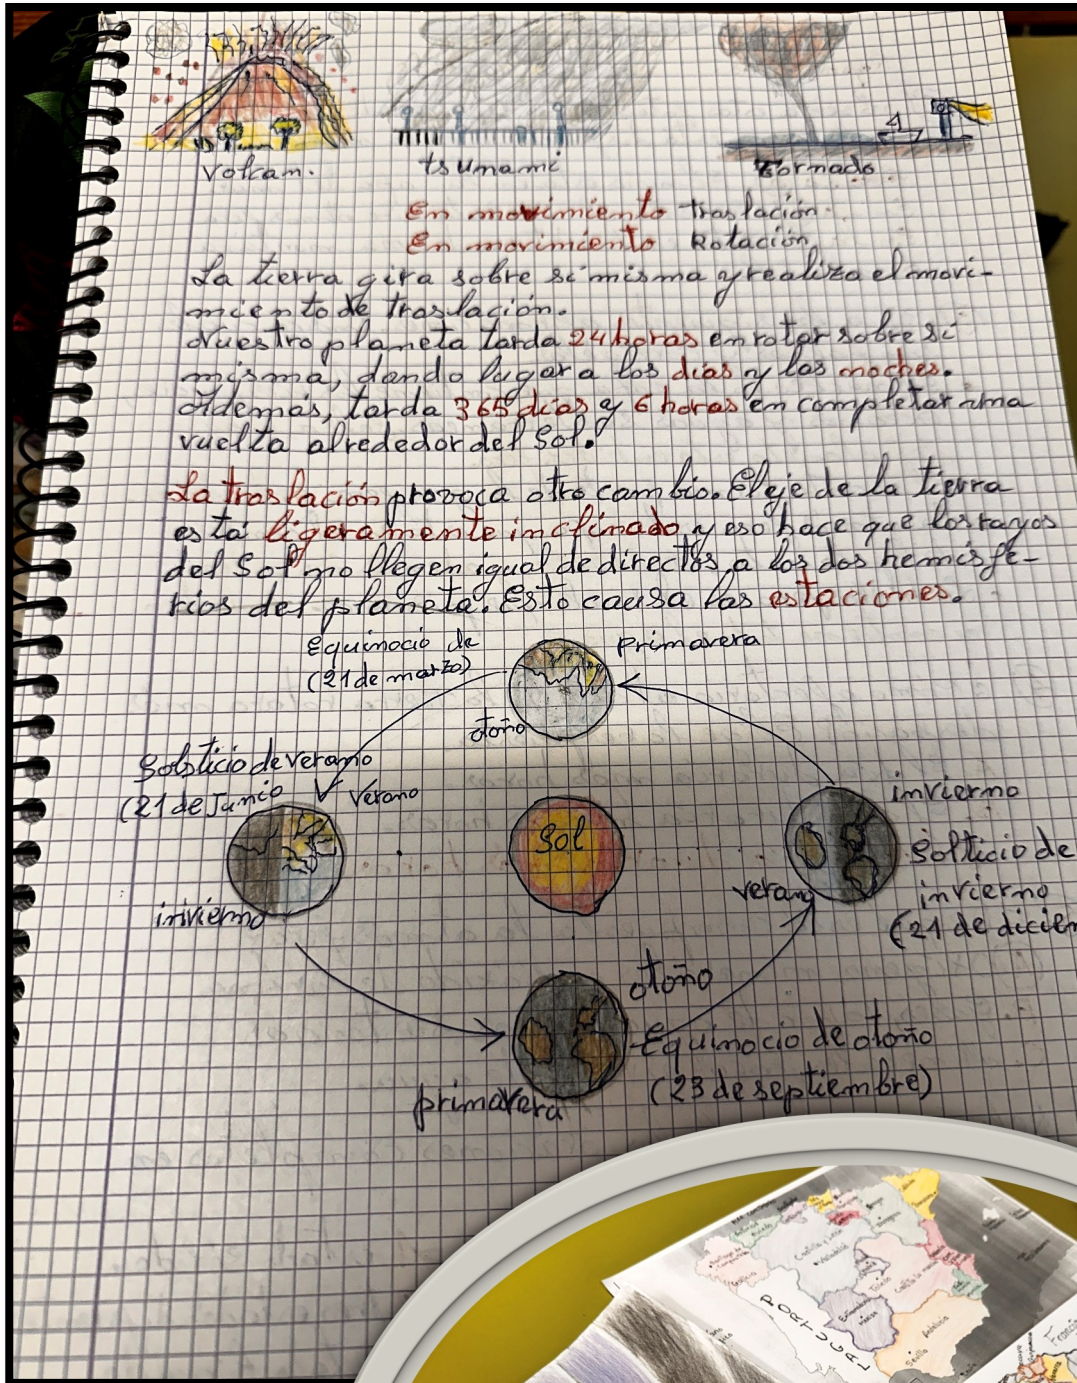 Volcam.
tsumami
tornado
En movimiento traslación.
En movimiento Rotación
La tierra gira sobre sí misma y realiza el movi-
miento de traslación.
Nuestro planeta tarda 24 horas en rotar sobre sí
misma, dando lugar a los días y las noches.
Además, tarda 365 días y 6 horas en completar una
vuelta alrededor del Sol.
La traslación provoca otro cambio. El eje de la tierra
está ligeramente inclinado y eso hace que los rayos
del Sol no llegen igual de directos a los dos hemisfe-
rios del planeta. Esto causa las estaciones.
Equinocio de
(21 de marzo)
Primavera
otoño
Solsticio de verano
(21 de Junio
Verano
invierno
Sol
invierno
Solticio de
invierno
(21 de diciem
verano
otoño
Equinocio de otoño
(23 de septiembre)
primavera
PORTUGAL
Castilla y León
Valladolid
Toledo
Extremadura
Mérida
Andalucía
Sevilla
Francia